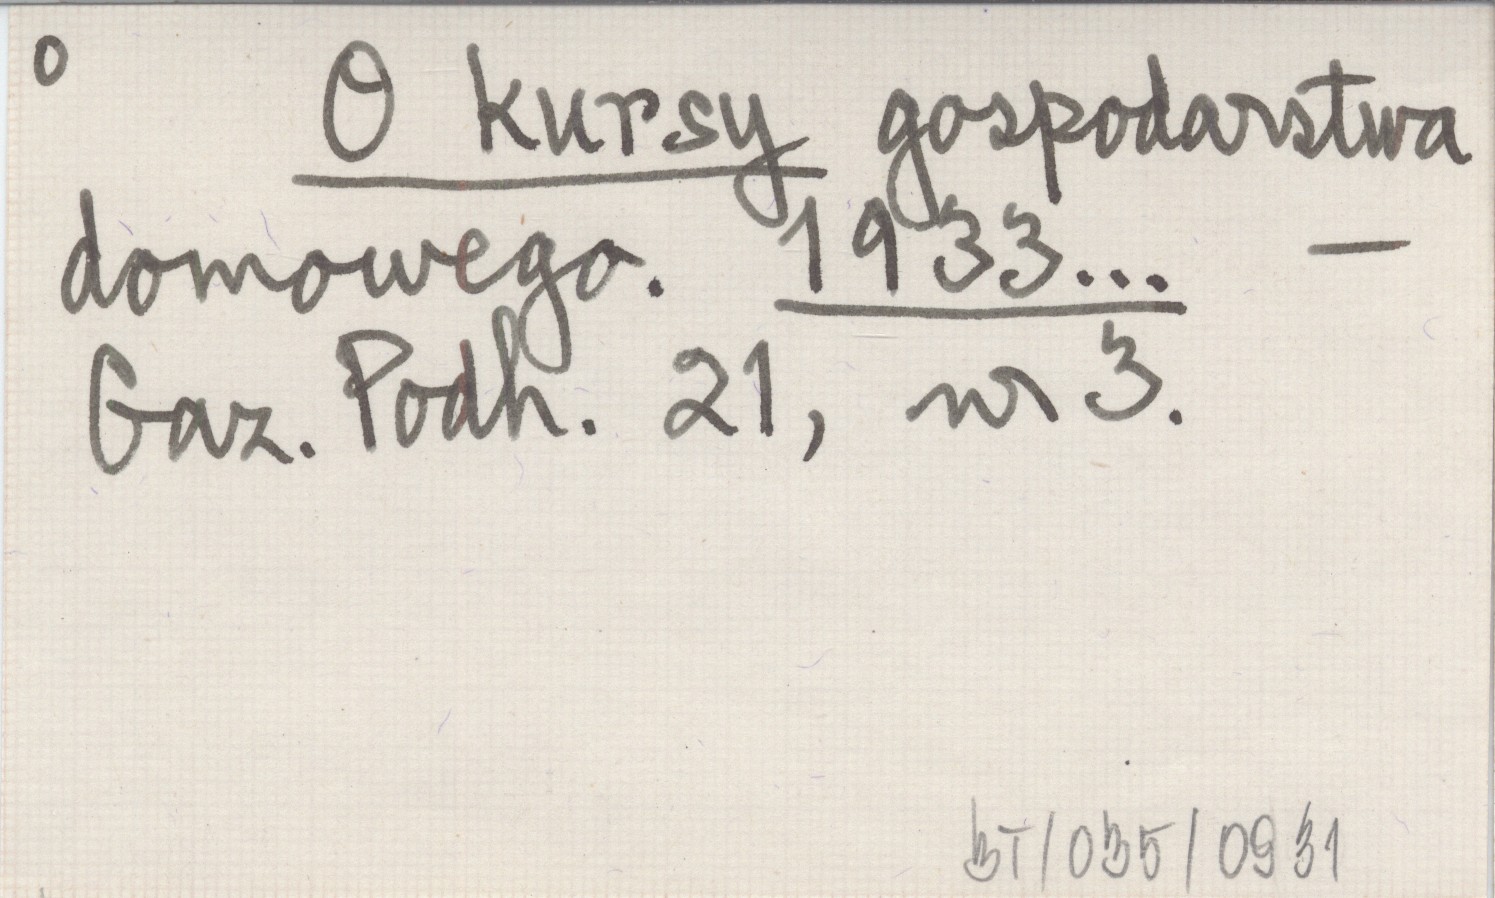 O
O kursy gospodarstwa
domowego. 1933... –
Gaz. Podh. 21, nr 3.
BT/035/0931